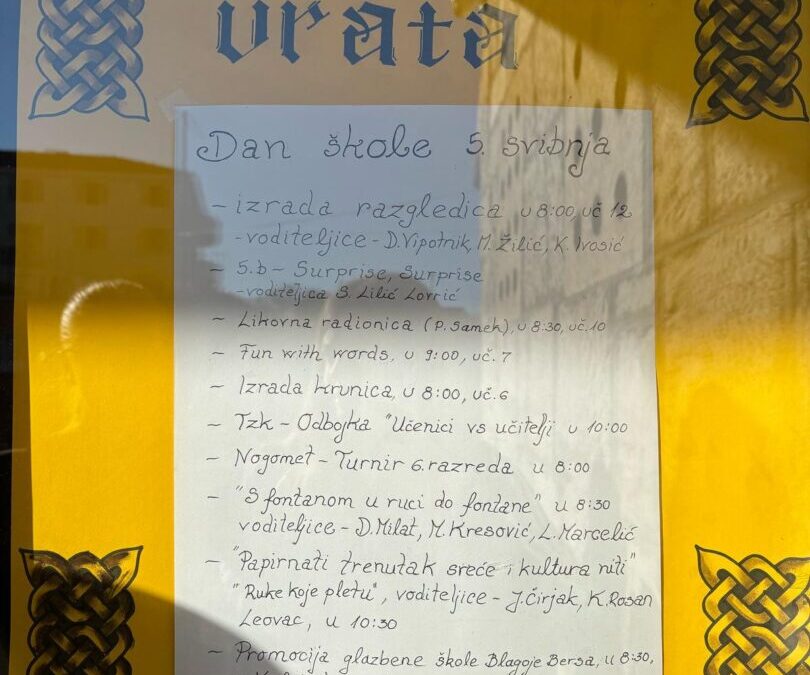 vrata
Dan škole 5. svibnja
- izrada razgledica u 8:00, uč 12
- voditeljice - D. Vipotnik, M. Žilić, K. Ivosić
- 5.b - Surprise, Surprise
- voditeljica S. Lilić Lovrić
- Likovna radionica (P. Sameh), u 8:30, uč. 10
- Fun with words, u 9:00, uč. 7
- Izrada krunica, u 8:00, uč. 6
- Tzk - Odbojka "Učenici vs učitelji u 10:00
- Nogomet - Turnir 6. razreda u 8:00
- "S fontanom u ruci do fontane" u 8:30
voditeljice - D. Milat, M. Kresović, L. Marcelić
- "Papirnati trenutak sreće i kultura niti"
"Ruke koje pletu", voditeljice - J. Čirjak, K. Rosan
Leovac, u 10:30
- Promocija glazbene škole Blagoje Bersa, u 8:30,